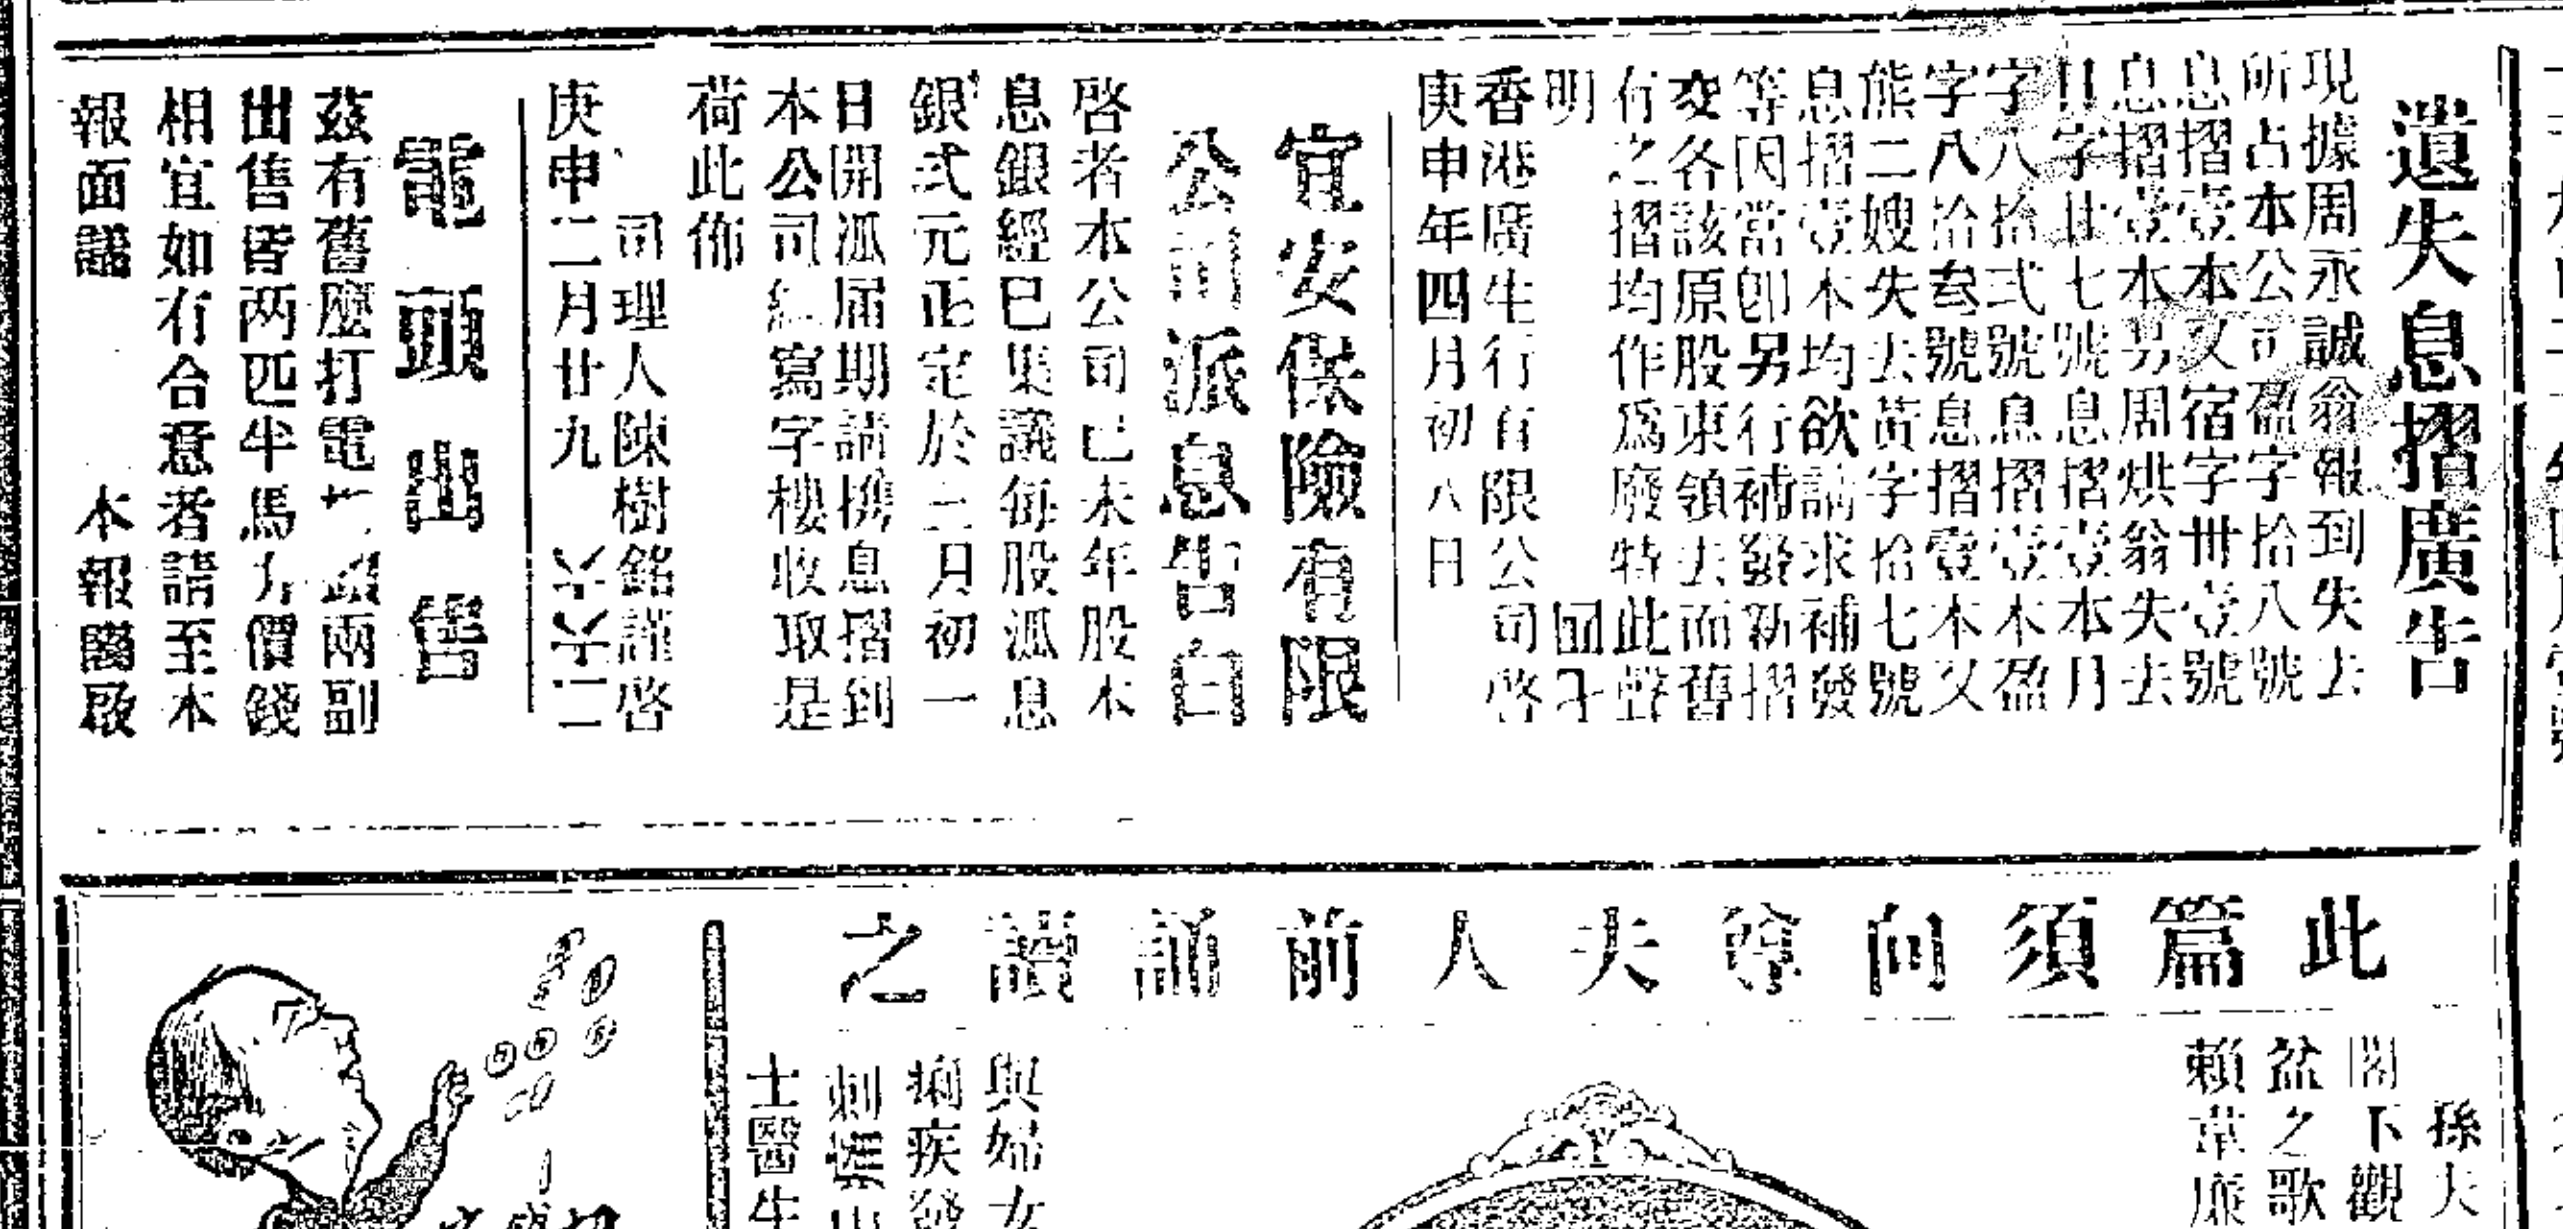 遺失息摺廣告
現據周永誠翁報到失去
所占本公司盈字拾八號
息摺壹本又宿字卅壹號
息摺壹本另周烘翁失去
日字廿七號息摺壹本月
字八拾弍號息摺壹本盈
字八拾叁號息摺壹本又
熊二嫂失去黃字拾七號
息摺壹本均欲請求補發
等因當卽另行補發新摺
交各該原股東領去而舊
有之摺均作爲廢特此聲
明
香港廣生行有限公司啓
庚申年四月初八日
宜安保險有限
公司派息告白
啓者本公司己未年股本
息銀經已集議每股派息
銀弍元正定於三月初一
日開派届期請携息摺到
本公司寫字樓收取是
荷此佈
司理人陳樹銘謹啓
庚申二月廿九
電頭出售
茲有舊麼打電頭兩副
出售皆两匹半馬力價錢
相宜如有合意者請至本
報面議 本報謹啟
此篇須向尊夫人前誦讀之
孫夫
閣下觀
盆之歌
賴韋廉
與婦女
痢疾發
刺
士醫生